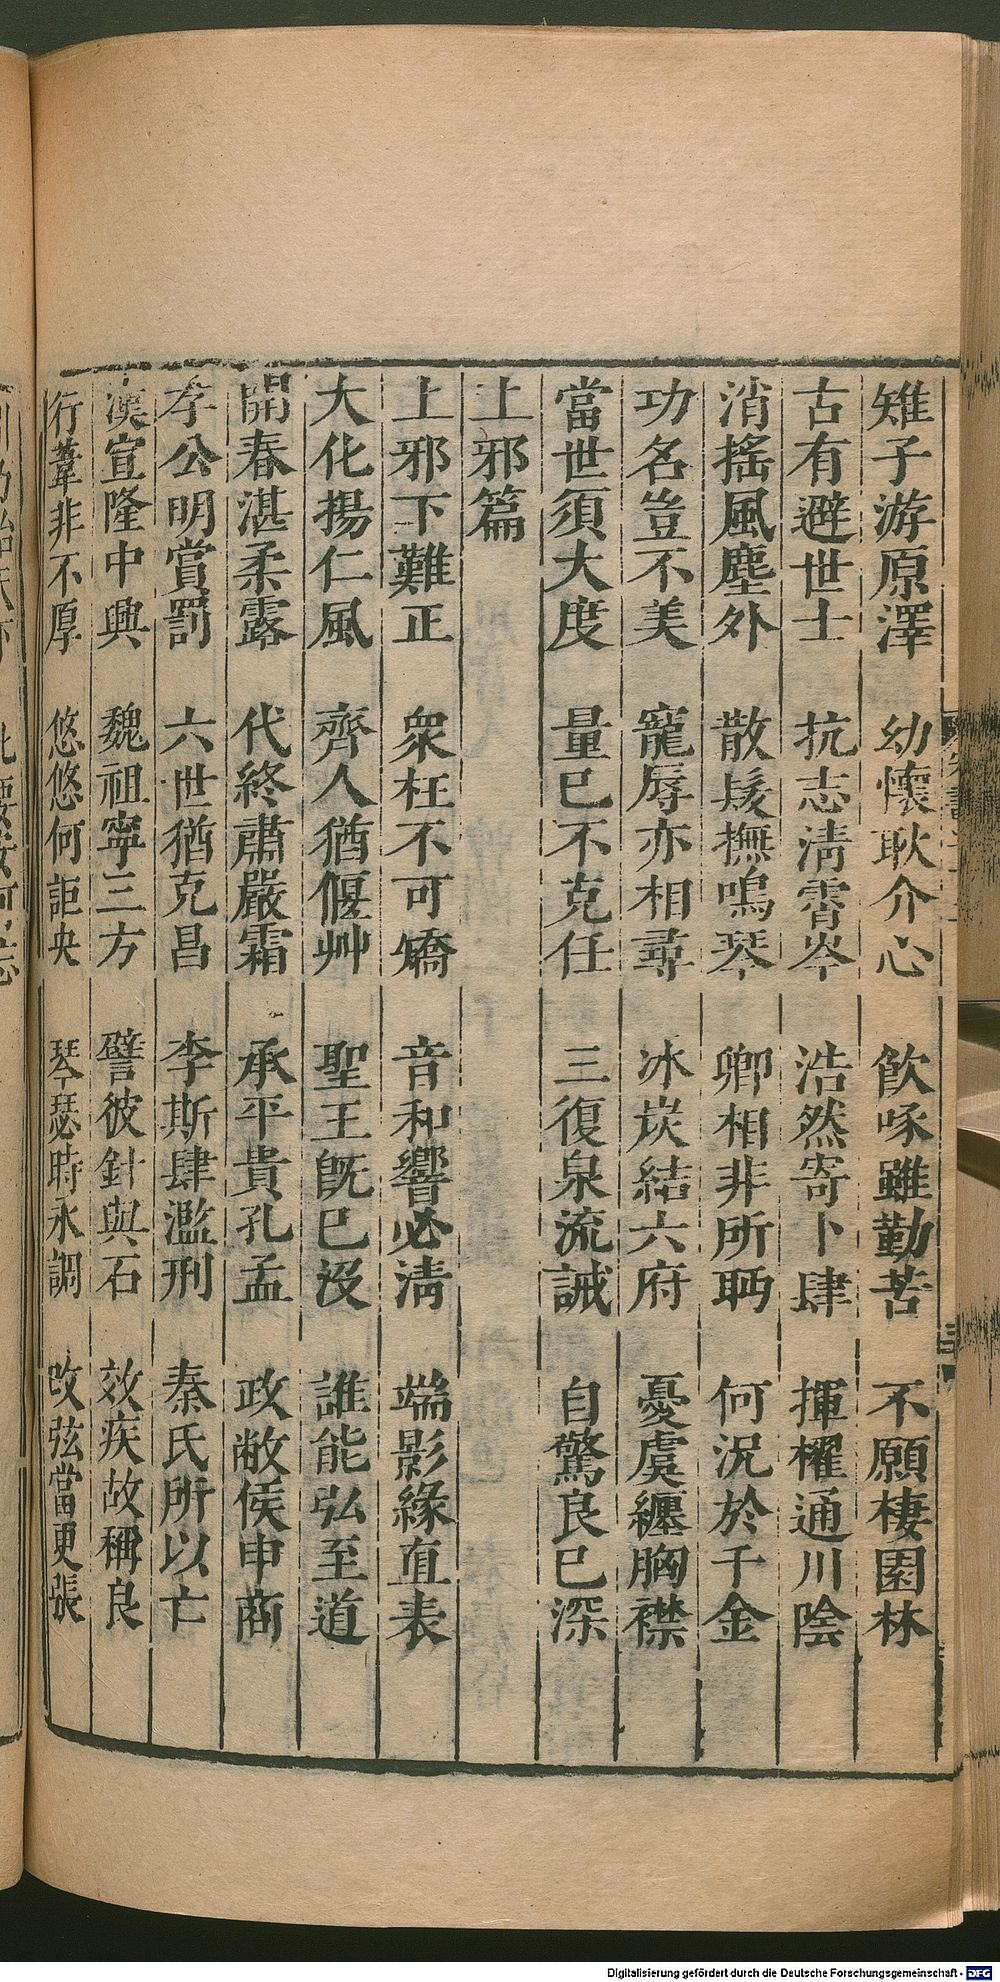 雉子游原澤 幼懷耿介心 飲啄雖勤苦 不願棲園林
古有避世士 抗志清霄岑 浩然寄卜肆 揮櫂通川陰
消搖風塵外 散髮撫鳴琴 卿相非所眄 何況於千金
功名豈不美 寵辱亦相尋 冰炭結六府 憂虞纏胸襟
當世須大度 量已不克任 三復泉流誡 自驚良已深
上邪篇
上邪下難正 衆枉不可矯 音和響必清 端影緣直表
大化揚仁風 齊人猶偃艸 聖王旣已沒 誰能弘至道
開春湛柔露 代終肅嚴霜 承平貴孔孟 政敝侯申商
孝公明賞罰 六世猶克昌 李斯肆濫刑 秦氏所以亡
漢宣隆中興 魏祖寧三方 譬彼針與石 效疾故稱良
行葦非不厚 悠悠何詎央 琴瑟時永調 改弦當更張
Digitalisierung gefördert durch die Deutsche Forschungsgemeinschaft - DFG